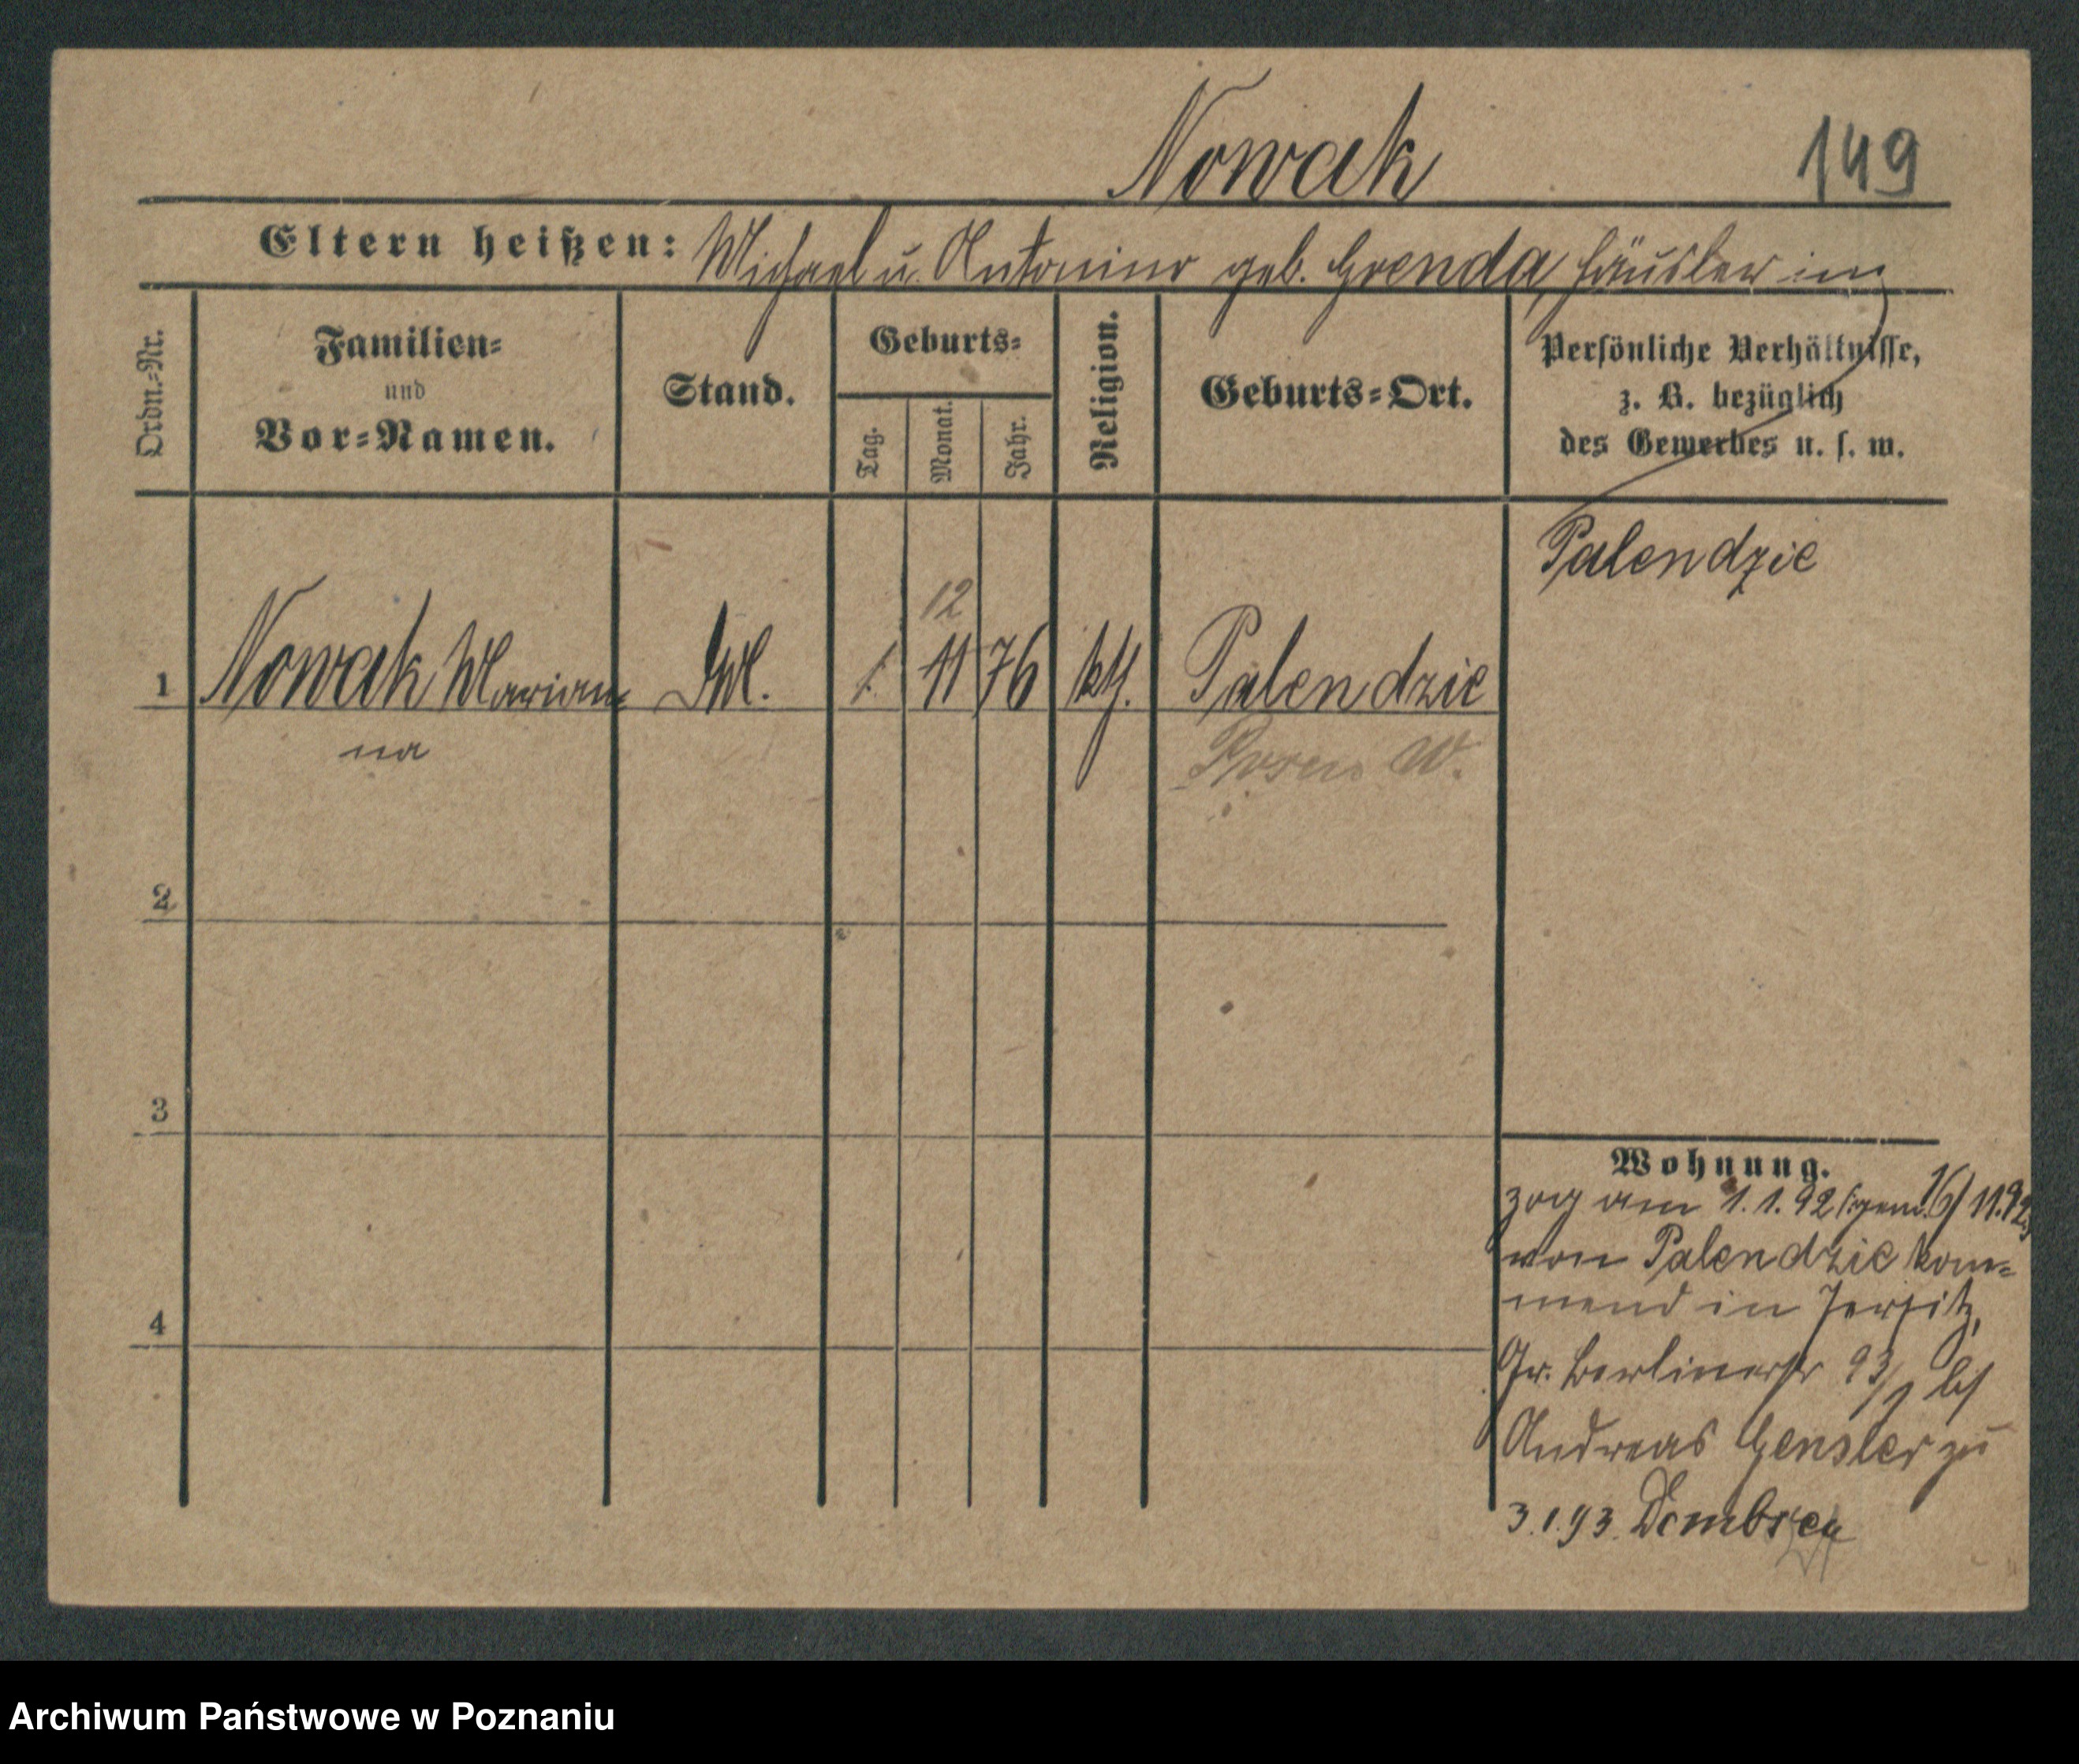 Nowak 149
Eltern heißen: Michael u. Antonina geb. Grenda, Häusler in
Ordn.-Nr.
Familien-
und
Vor-Namen.
Stand.
Geburts-
Tag.
Monat.
Jahr.
Religion.
Geburts-Ort.
Persönliche Verhältnisse,
z. B. bezüglich
des Gewerbes u. s. w.
Palendzie
12
1 Nowak Marian- 1. 11 76 kth. Palendzie
na
Posen W.
2
3
4
Wohnung.
zog am 1.1.92 (gem. 16/11.92)
von Palendzie kom-
mend in Jersitz,
Gr. Berlinerstr 93/1 bei
Andreas Gensler zu
3.1.93. Dembsen
Archiwum Państwowe w Poznaniu